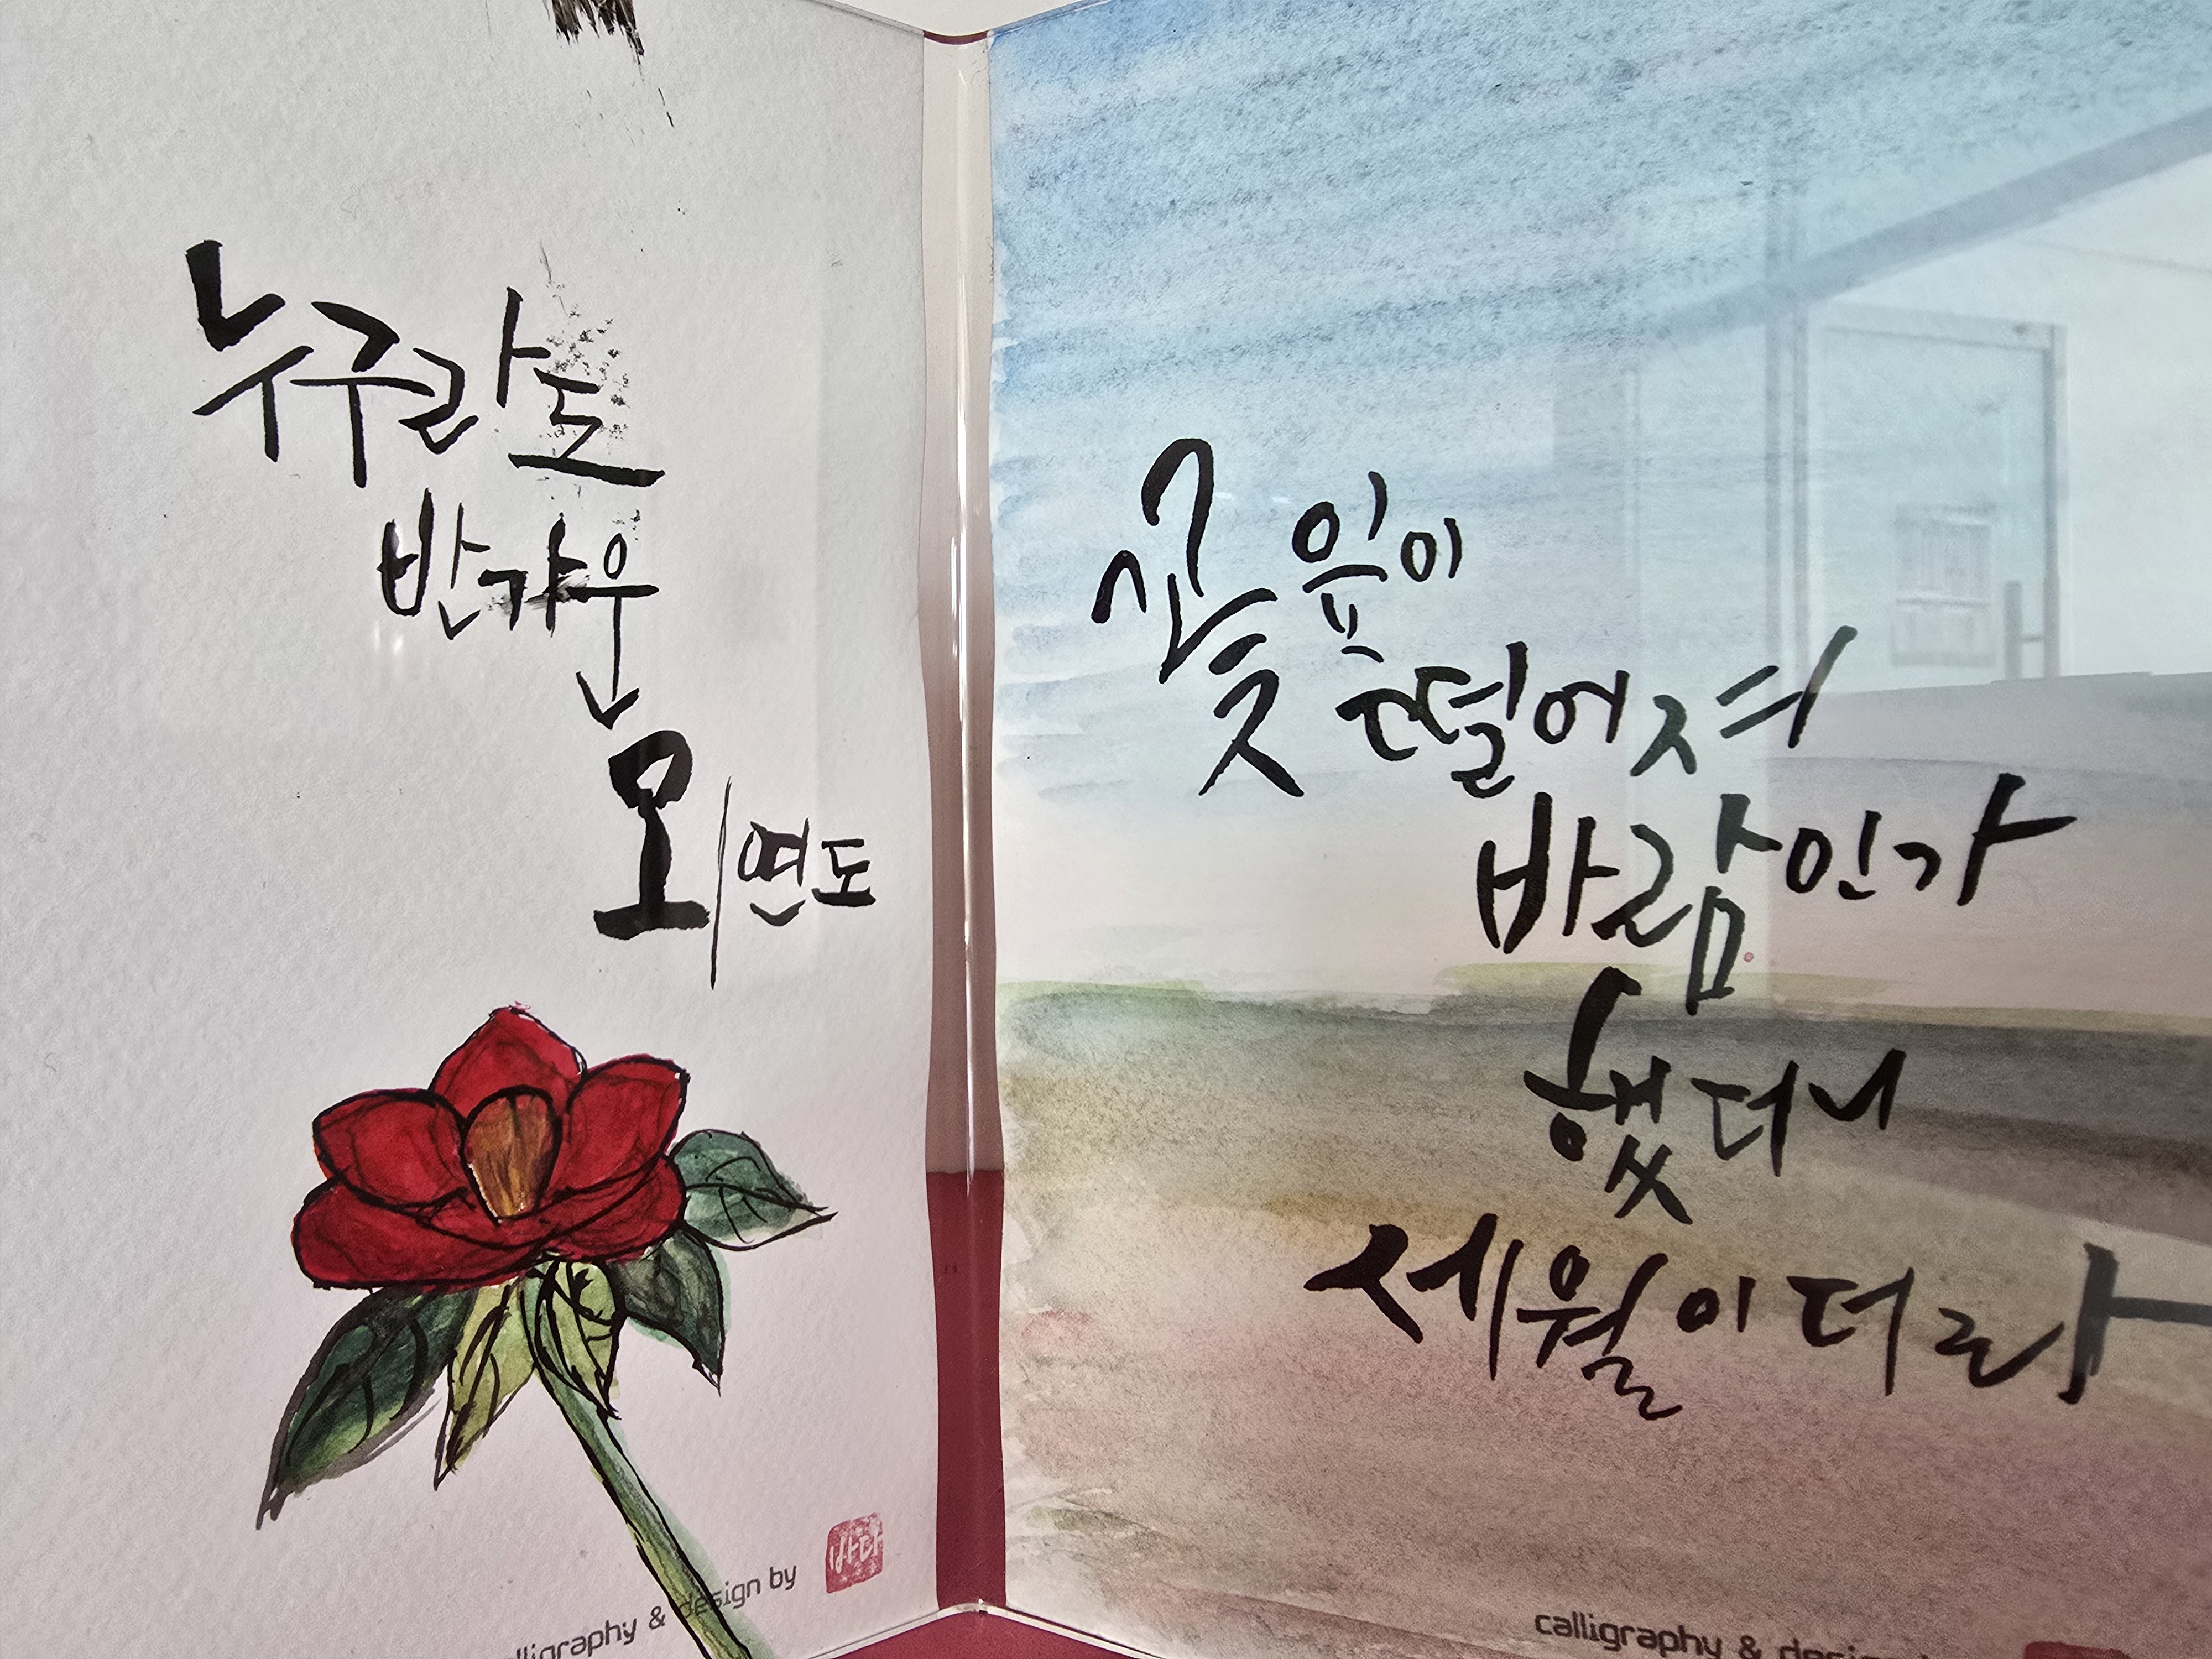 누구라도
반가운
외연도
바다
calligraphy & design by
꽃잎이
떨어져
바람인가
했더니
세월이더라
calligraphy & design